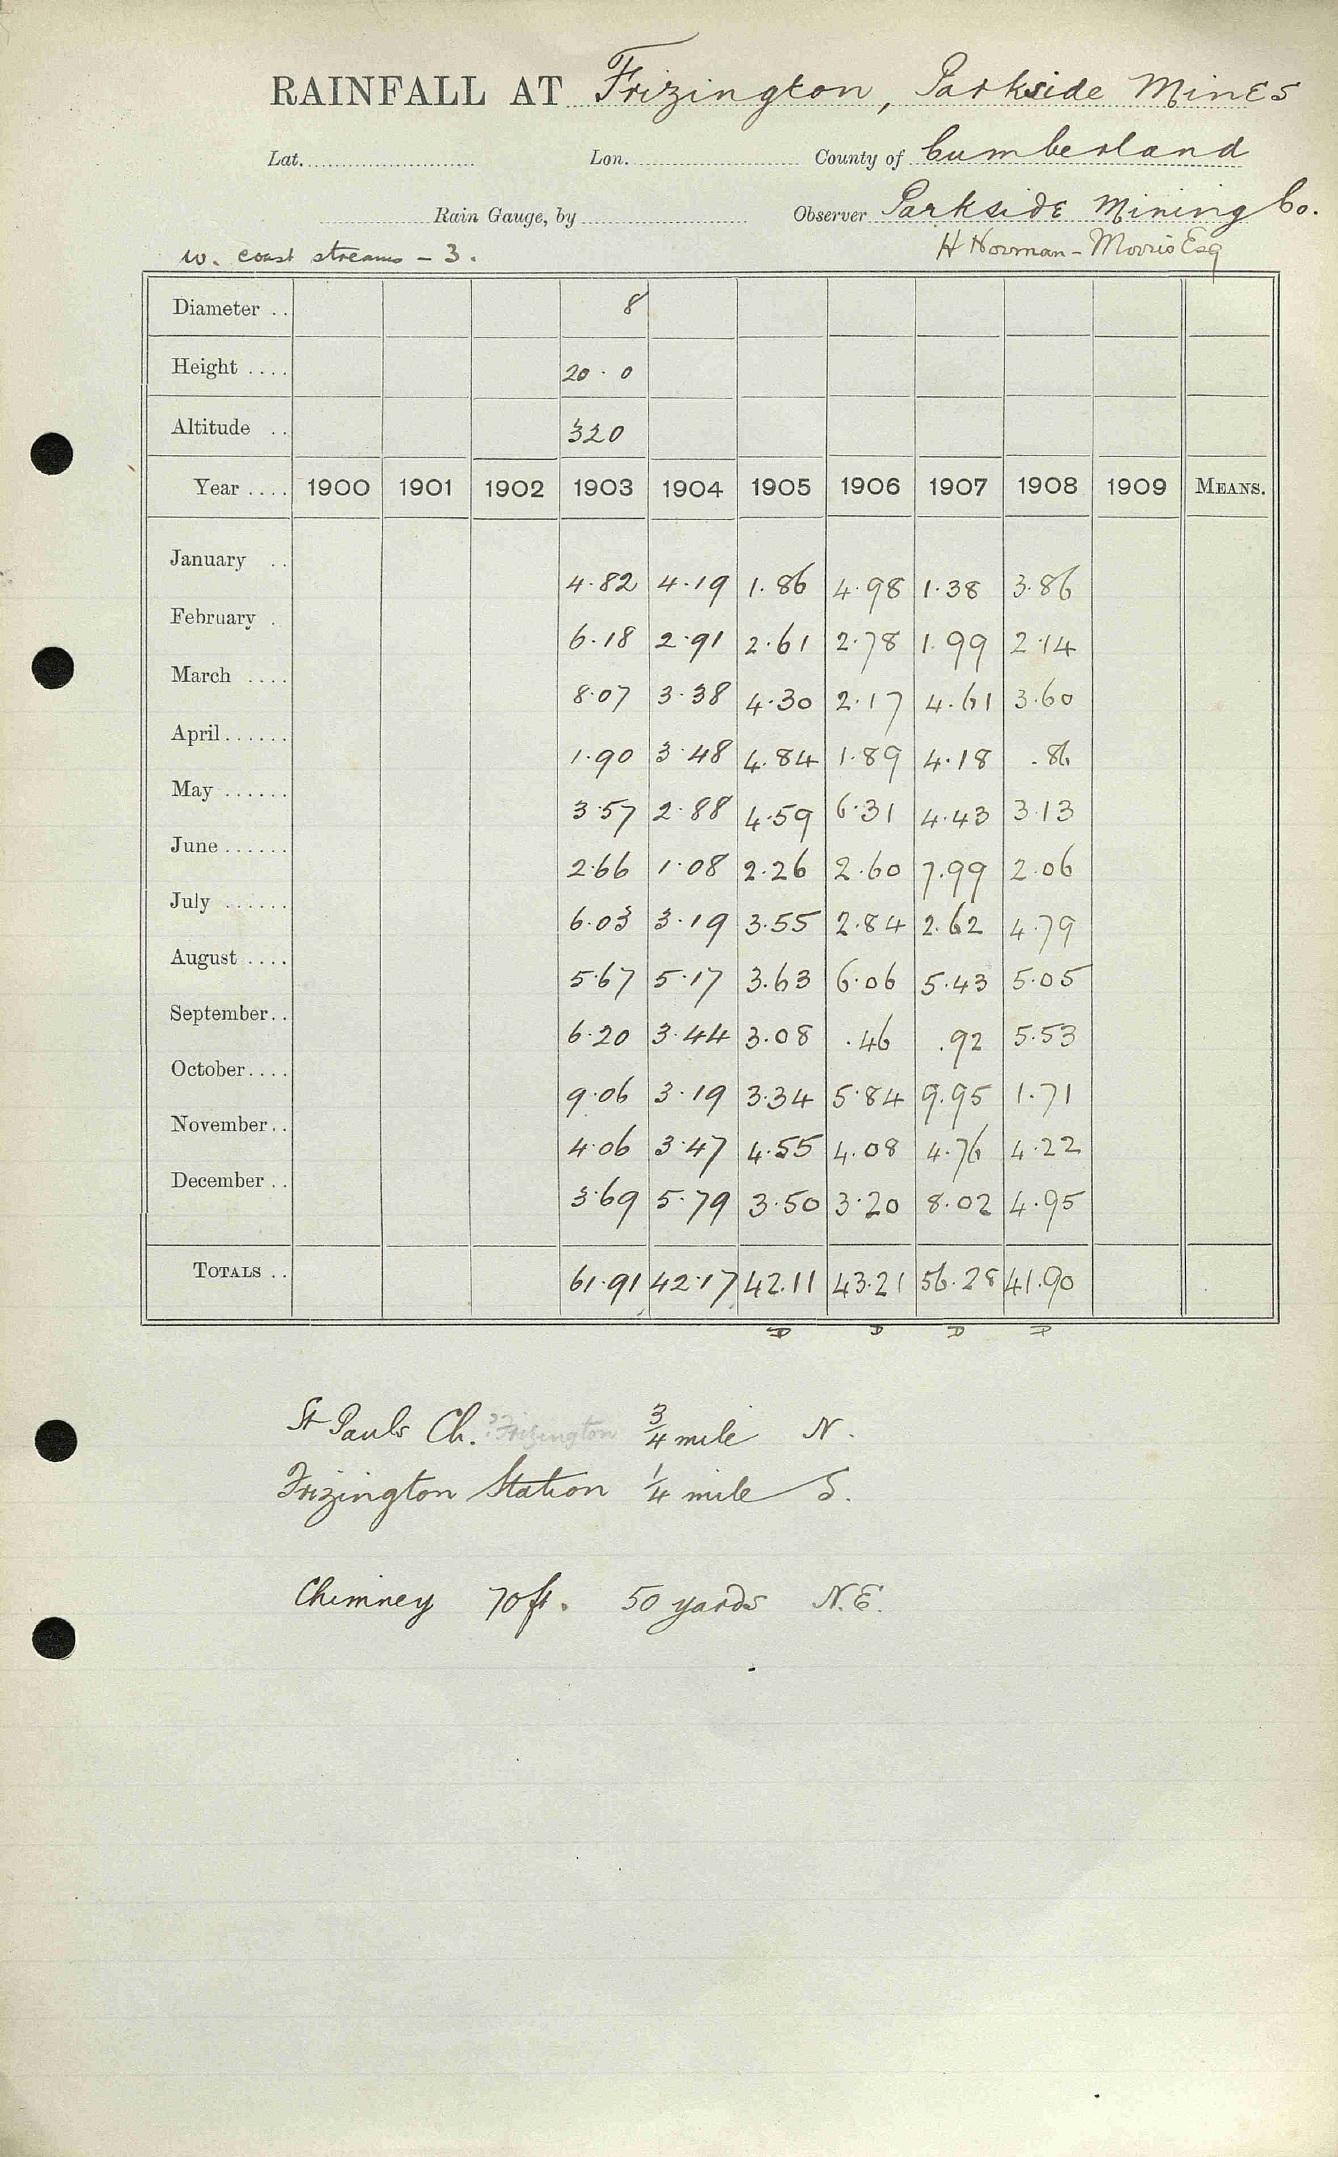 RAINFALL AT Frizington, Parkside Mines
Lat. Lon. County of Cumberland
Rain Gauge, by Observer Parkside Mining Co.
W. coast streams - 3. H Norman - Morris Esq
Diameter .. 8
Height .... 20.0
Altitude .. 320
Year .... 1900 1901 1902 1903 1904 1905 1906 1907 1908 1909 MEANS.
January .. 4.82 4.19 1.86 4.98 1.38 3.86
February . 6.18 2.91 2.61 2.78 1.99 2.14
March .... 8.07 3.38 4.30 2.17 4.61 3.60
April...... 1.90 3.48 4.84 1.89 4.18 .86
May ...... 3.57 2.88 4.59 6.31 4.43 3.13
June ...... 2.66 1.08 2.26 2.60 7.99 2.06
July ...... 6.03 3.19 3.55 2.84 2.62 4.79
August .... 5.67 5.17 3.63 6.06 5.43 5.05
September.. 6.20 3.44 3.08 .46 .92 5.53
October.... 9.06 3.19 3.34 5.84 9.95 1.71
November.. 4.06 3.47 4.55 4.08 4.76 4.22
December .. 3.69 5.79 3.50 3.20 8.02 4.95
TOTALS .. 61.91 42.17 42.11 43.21 56.28 41.90
D D D D
St Pauls Ch. ? Frizington 3/4 mile N.
Frizington Station 1/4 mile S.
Chimney 70 ft. 50 yards N.E.